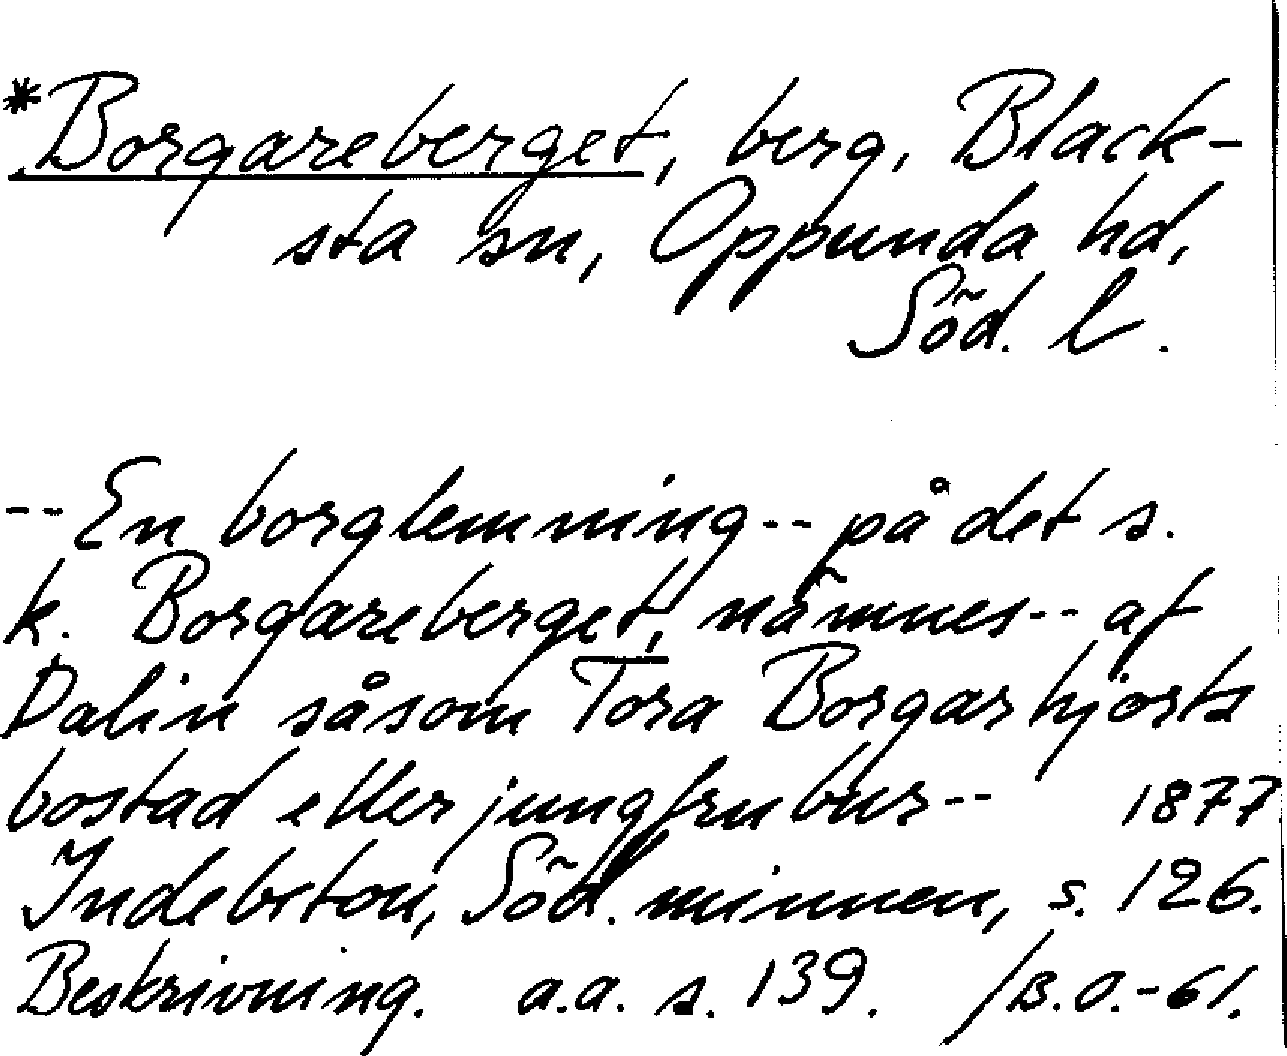 *Borgareberget, berg, Black-
sta sn, Oppunda hd,
Söd. l.
-- En borglemning -- på det s.
k. Borgareberget, nämnes -- af
Dalin såsom Tora Borgarhjorts
bostad eller jungfrubur -- 1877
Indebetou, Söd. minnen, s. 126.
Beskrivning. a.a. s. 139. /B.O.-61.